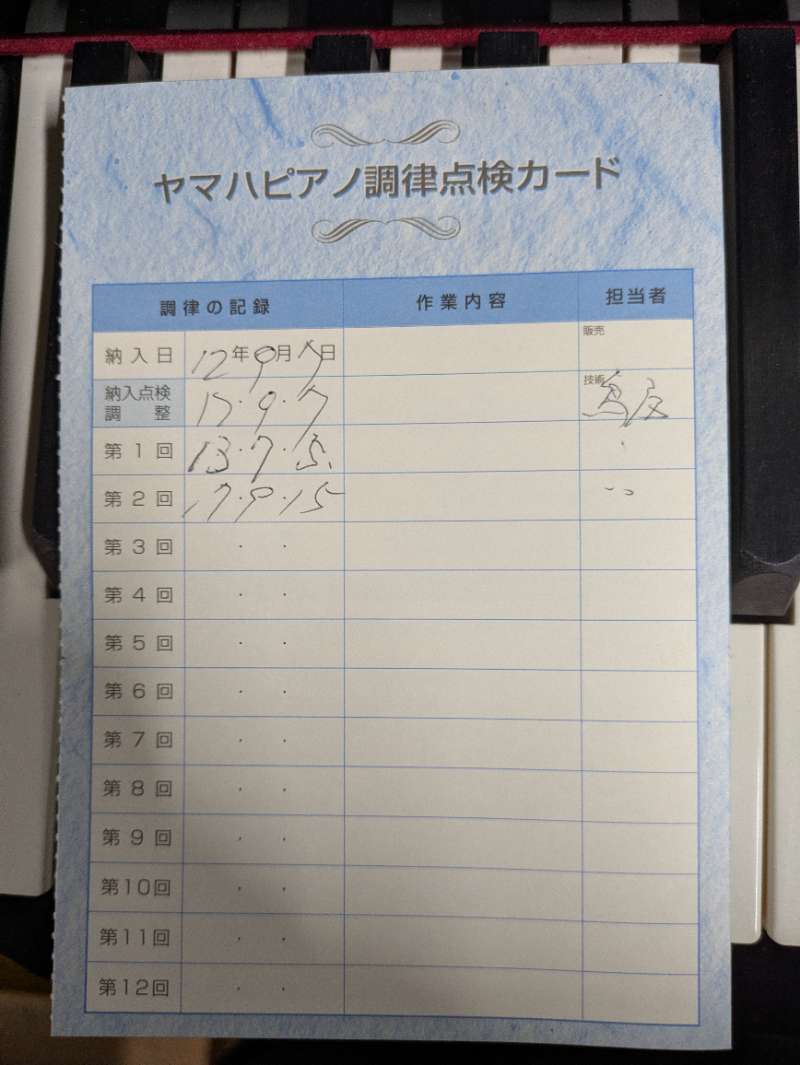 ヤマハピアノ調律点検カード
調律の記録 作業内容 担当者
納入日 12年9月7日 販売
納入点検調整 17・9・7 技術
第1回 13・7・15
第2回 17・9・15
第3回 ・ ・
第4回 ・ ・
第5回 ・ ・
第6回 ・ ・
第7回 ・ ・
第8回 ・ ・
第9回 ・ ・
第10回 ・ ・
第11回 ・ ・
第12回 ・ ・